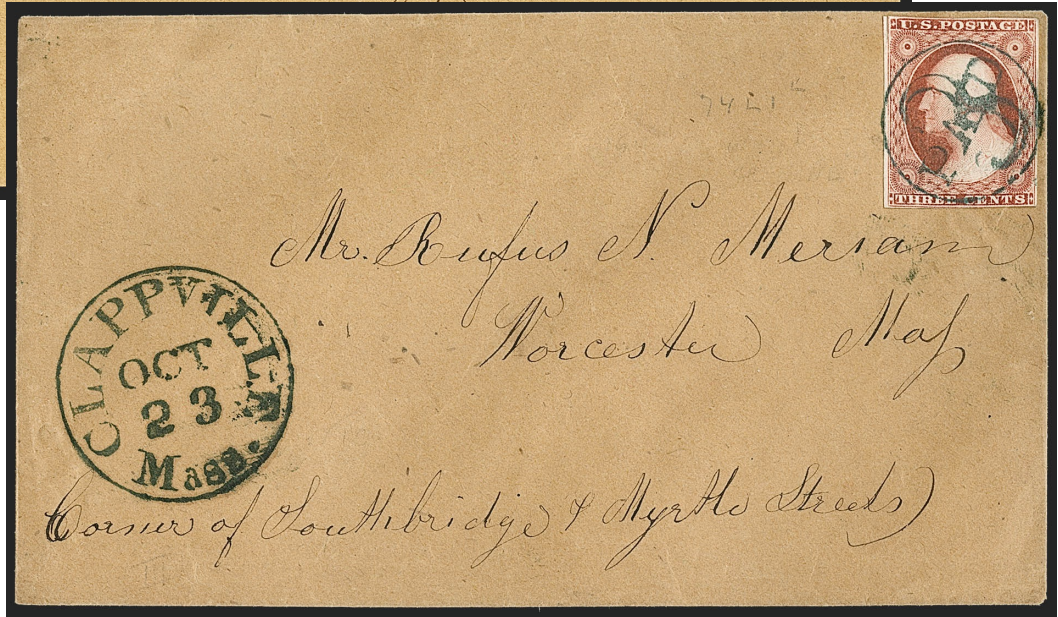 U.S. POSTAGE
PAID
THREE CENTS
74L1
Mr. Rufus N. Merriam
Worcester Mass
CLAPPVILLE
OCT
23
Mass.
Corner of Southbridge & Myrtle Streets